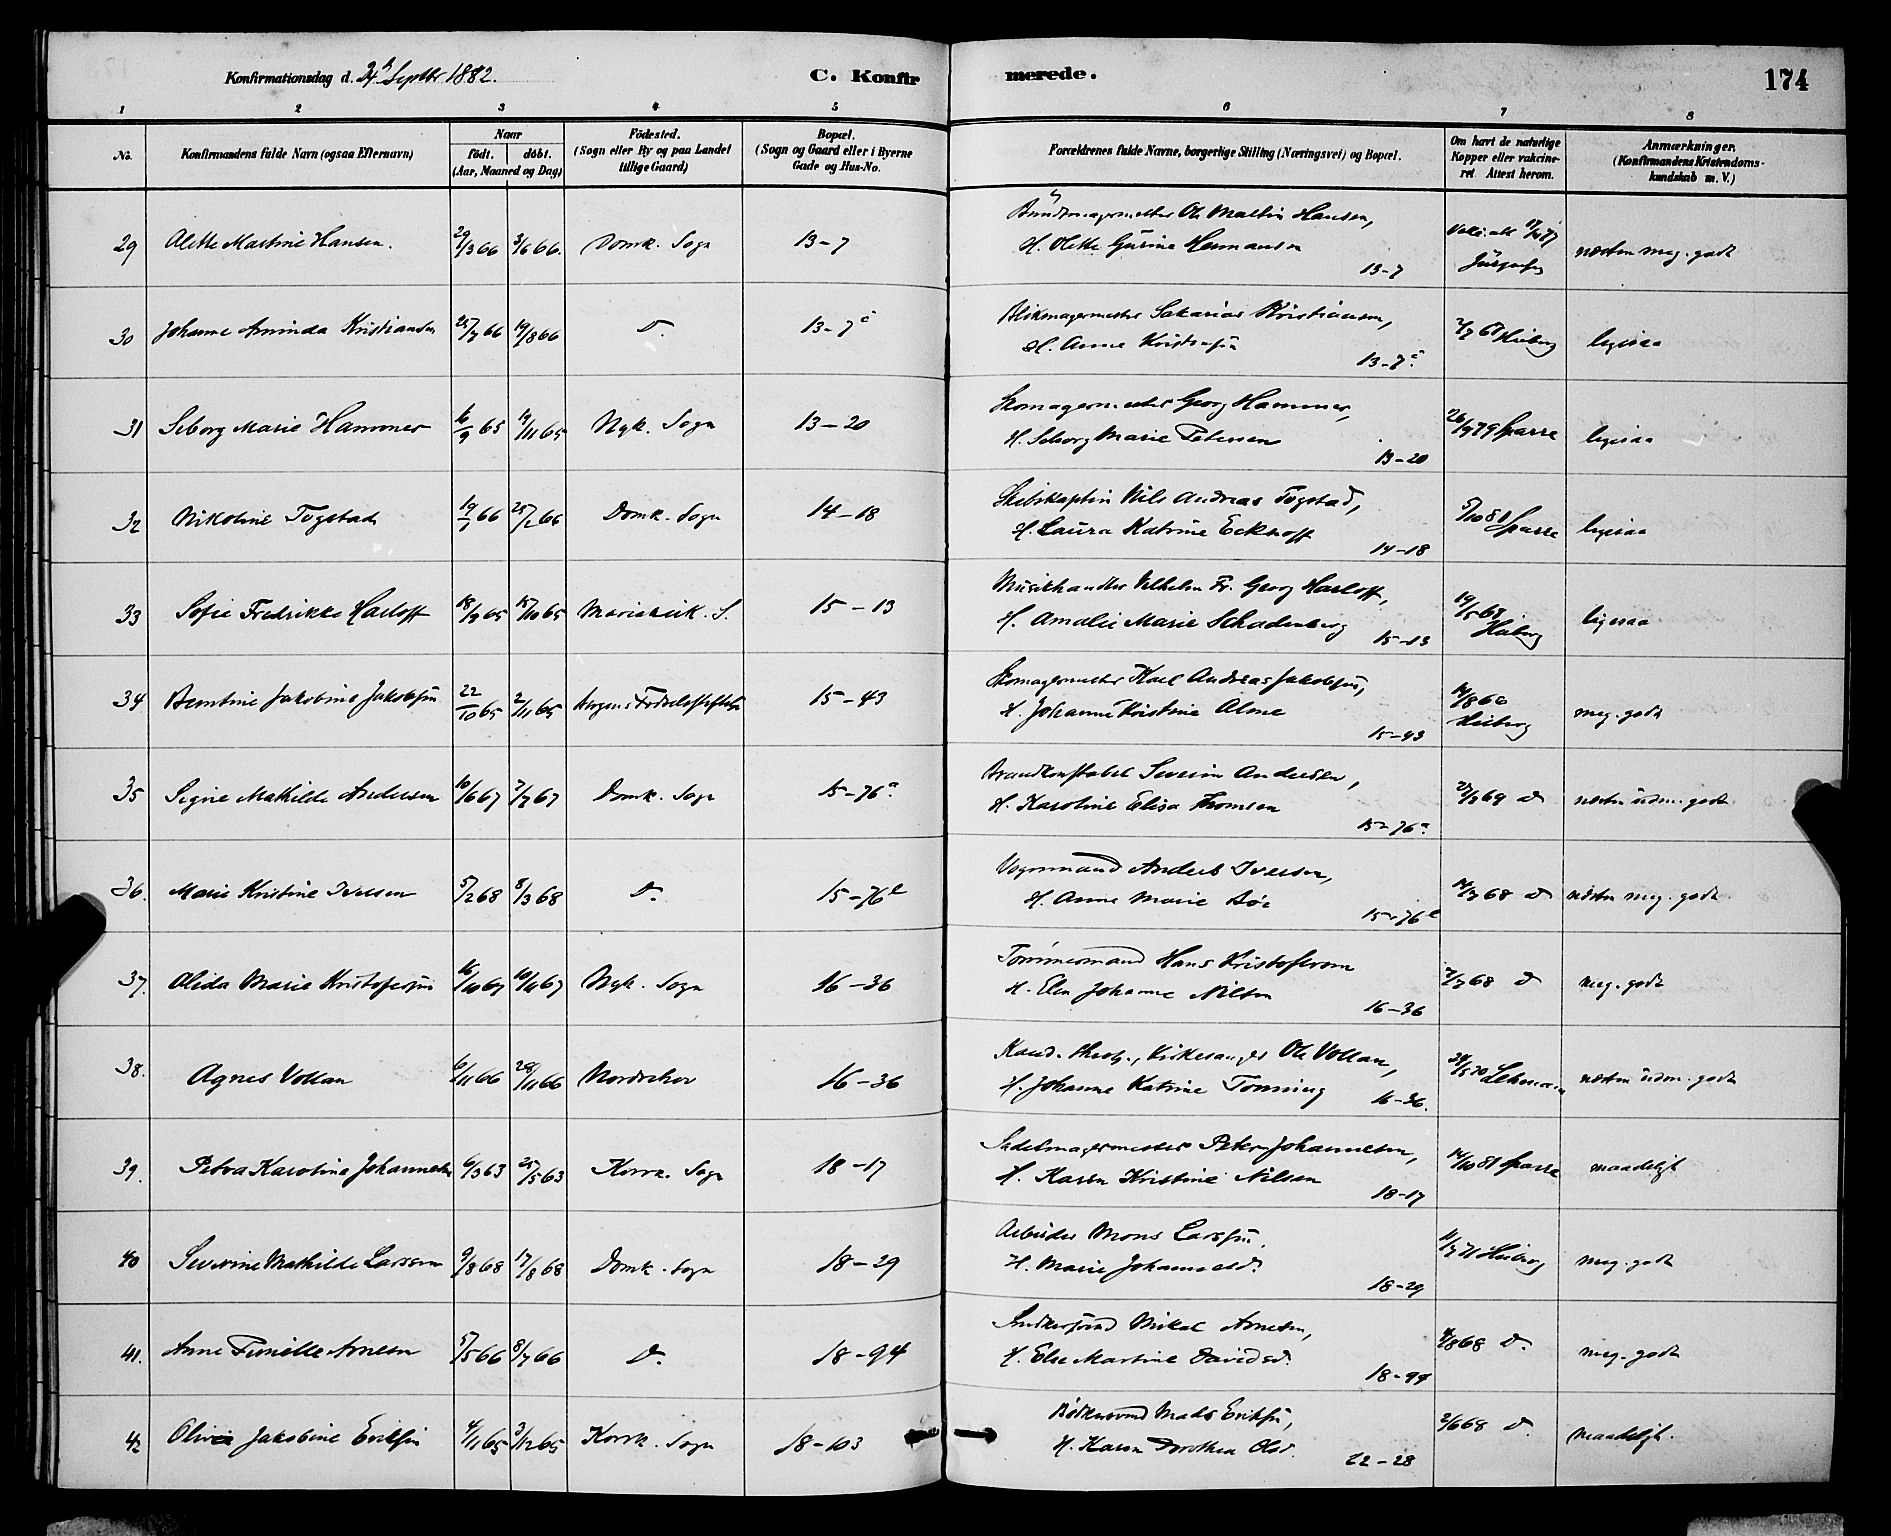 Konfirmationsdag d. 24de Septbr 1882.
C. Konfirmerede.
174
1 2 3 4 5 6 7 8
No.
Konfirmandens fulde Navn (ogsaa Efternavn)
Naar
födt. döbt.
(Aar, Maaned og Dag)
Födested.
(Sogn eller By og paa Landet
tillige Gaard)
Bopæl.
(Sogn og Gaard eller i Byerne
Gade og Hus-No.
Forældrenes fulde Navne, borgerlige Stilling (Næringsvei) og Bopæl.
Om havt de naturlige
Kopper eller vakcine-
ret Attest herom.
Anmærkninger.
(Konfirmandens Kristendoms-
kundskab m. V.)
29 Alette Martine Hansen. 3/6 66. Domk. Sogn 13-7
Ole Martin Hansen,
H. Olette Gurine Hermansen
13-7
næsten meg. godt
30 Johanne Aminda Kristiansen 25/7 66 19/8 66 D. 13-7c
Blikmagermester Sakarias Kristiansen,
H. Anne
13-7c
Heiberg
ligesaa
31 Seborg Marie Hammer 16/9 65 19/11 65 Nyk. Sogn 13-20
Skomagermester Georg Hammer,
H. Seborg Marie Petersen
13-20
26/9 79 Sparre
ligesaa
32 Nikoline Tygstad 19/1 66 25/2 66 Domk. Sogn 14-18
Skibskaptin Nils Andreas Tygstad,
H. Laura Katrine Eckhoff
14-18
5/10 81 Sparre
ligesaa
33 Sofie Fredrikke Harloff 18/9 65 15/10 65 Mariakirk. S. 15-13
Musikhandler Vilhelm Fr. Georg Harloff,
H. Amalie Marie Schadenberg
15-13
19/5 68
Heiberg
ligesaa
34 Berntine Jakobine Jakobsen 22/10 65 2/11 65 Bergens Fødselsstiftelse 15-43
Skomagermester Karl Andreas Jakobsen,
H. Johanne Kristine Alme
15-43
14/8 66
Heiberg
meg. godt
35 Signe Mathilde Andersen 10/6 67 7/7 67 Domk. Sogn 15-76a
Brandkonstabel Severin Andersen,
H. Karoline Elisa Thomsen
15-76a.
69 D
næsten udm. godt
36. Marie Kristine Iversen 5/2 68 8/3 68 D. 15-76b
Vognmand Anders Iversen,
H. Anne Marie Bøe
15-76b
68 D
næsten meg. godt
37. Alida Marie Kristofersen 16/10 67 10/11 67 Nyk. Sogn 16-36
Tømmermand Hans Kristofersen
H. Elen Johanne Nilsen
16-36
68 D
meg. godt
38. Agnes Vollan 6/11 66 28/11 66 Nordrehov 16-36
Kand. theol., Kirkesanger Ole Vollan,
H. Johanne Katrine Tonning
16-36.
24/5 70 Lehmann
næsten udm. godt
39. Petra Karolina Johannesen 6/3 63 25/5 63 Korsk. Sogn 18-17
Sadelmagermester Peter Johannesen,
H. Karen Kristine Nilsen
18-17
14/10 81 Sparre
maadeligt
40 Severine Mathilde Larssen 9/8 68 17/8 68 Domk. Sogn 18-29
Arbeider Mons Larssen.
H. Marie Johannesd.
18-29
11/7 71 Heiberg
meg. godt
41. Anne Pernille Arnesen 5/5 66 8/7 66 D. 18-94
Snedkersvend Mikal Arnesen,
H. Else Martine Davidsd.
18-94
68 D.
meg. godt
42 Olivia Jakobine Eriksen 4/11 65 3/12 65 Korsk. Sogn 18-103
Bødkersvend Mads Eriksen,
H. Karen Dorothea Olsd.
22-28
2/6 68 D.
maadeligt.